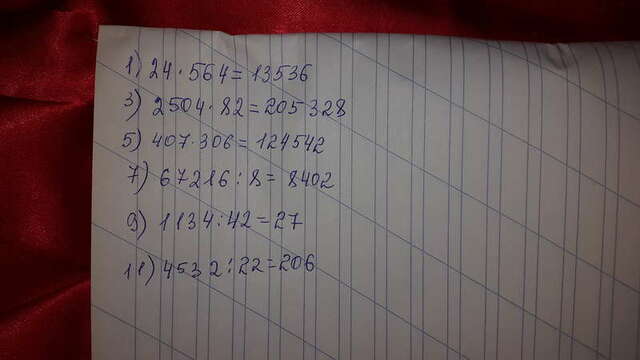 1) 24 · 564 = 13536
3) 2504 · 82 = 205328
5) 407 · 306 = 124542
7) 67216 : 8 = 8402
9) 1134 : 42 = 27
11) 4532 : 22 = 206